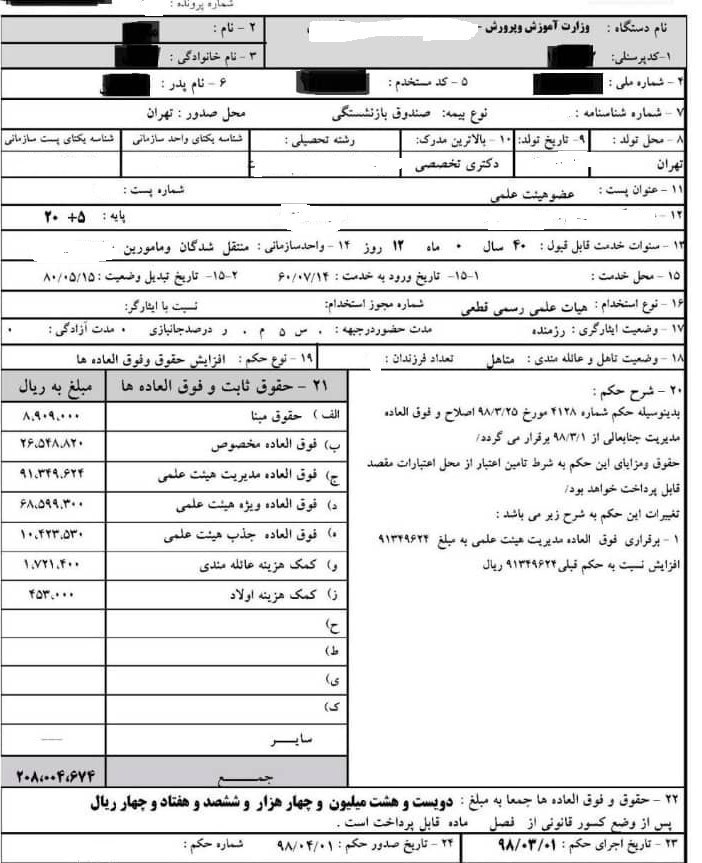 شماره پرونده :
نام دستگاه : وزارت آموزش وپرورش -
۲ - نام :
۱-کدپرسنلی:
۳ - نام خانوادگی :
۴ - شماره ملی :
۵ - کد مستخدم :
۶ - نام پدر :
۷ - شماره شناسنامه :
نوع بیمه: صندوق بازنشستگی
محل صدور : تهران
۸ - محل تولد :
۹- تاریخ تولد:
۱۰ - بالاترین مدرک:
رشته تحصیلی :
شناسه یکتای واحد سازمانی
شناسه یکتای پست سازمانی
تهران
دکتری تخصصی
۱۱ - عنوان پست : عضوهیئت علمی
شماره پست :
۱۲ -
پایه : ۵+ ۲۰
۱۳ - سنوات خدمت قابل قبول : ۴۰ سال ۰ ماه ۱۲ روز
۱۴ - واحدسازمانی : منتقل شدگان ومامورین
۱۵ - محل خدمت :
۱۵-۱- تاریخ ورود به خدمت : ۶۰/۰۷/۱۴
۱۵-۲- تاریخ تبدیل وضعیت : ۸۰/۰۵/۱۵
۱۶ - نوع استخدام : هیات علمی رسمی قطعی
شماره مجوز استخدام:
نسبت با ایثارگر:
۱۷ - وضعیت ایثارگری : رزمنده
مدت حضوردرجبهه : . س ۵ م . ر
درصدجانبازی ۰
مدت آزادگی : ۰
۱۸ - وضعیت تاهل و عائله مندی : متاهل
تعداد فرزندان :
۱۹ - نوع حکم : افزایش حقوق وفوق العاده ها
۲۰ - شرح حکم :
بدینوسیله حکم شماره ۴۱۲۸ مورخ ۹۸/۳/۲۵ اصلاح و فوق العاده
مدیریت جنابعالی از ۹۸/۳/۱ برقرار می گردد/
حقوق ومزایای این حکم به شرط تامین اعتبار از محل اعتبارات مقصد
قابل پرداخت خواهد بود/
تغییرات این حکم به شرح زیر می باشد :
۱ - برقراری فوق العاده مدیریت هیئت علمی به مبلغ ۹۱۳۴۹۶۲۴
افزایش نسبت به حکم قبلی۹۱۳۴۹۶۲۴ ریال
۲۱ - حقوق ثابت و فوق العاده ها
مبلغ به ریال
الف ) حقوق مبنا ۸,۹۰۹,۰۰۰
ب) فوق العاده مخصوص ۲۶,۵۴۸,۸۲۰
ج) فوق العاده مدیریت هیئت علمی ۹۱,۳۴۹,۶۲۴
د) فوق العاده ویژه هیئت علمی ۶۸,۵۹۹,۳۰۰
ه) فوق العاده جذب هیئت علمی ۱۰,۴۲۳,۵۳۰
و) کمک هزینه عائله مندی ۱,۷۲۱,۴۰۰
ز) کمک هزینه اولاد ۴۵۳,۰۰۰
ح)
ط)
ی)
ک)
سایـــر ---
جمـــــع ۲۰۸,۰۰۴,۶۷۴
۲۲ - حقوق و فوق العاده ها جمعا به مبلغ : دویست و هشت میلیون و چهار هزار و ششصد و هفتاد و چهار ریال
پس از وضع کسور قانونی از فصل ماده قابل پرداخت است .
۲۳ - تاریخ اجرای حکم : ۹۸/۰۳/۰۱
۲۴ - تاریخ صدور حکم : ۹۸/۰۴/۰۱
شماره حکم :